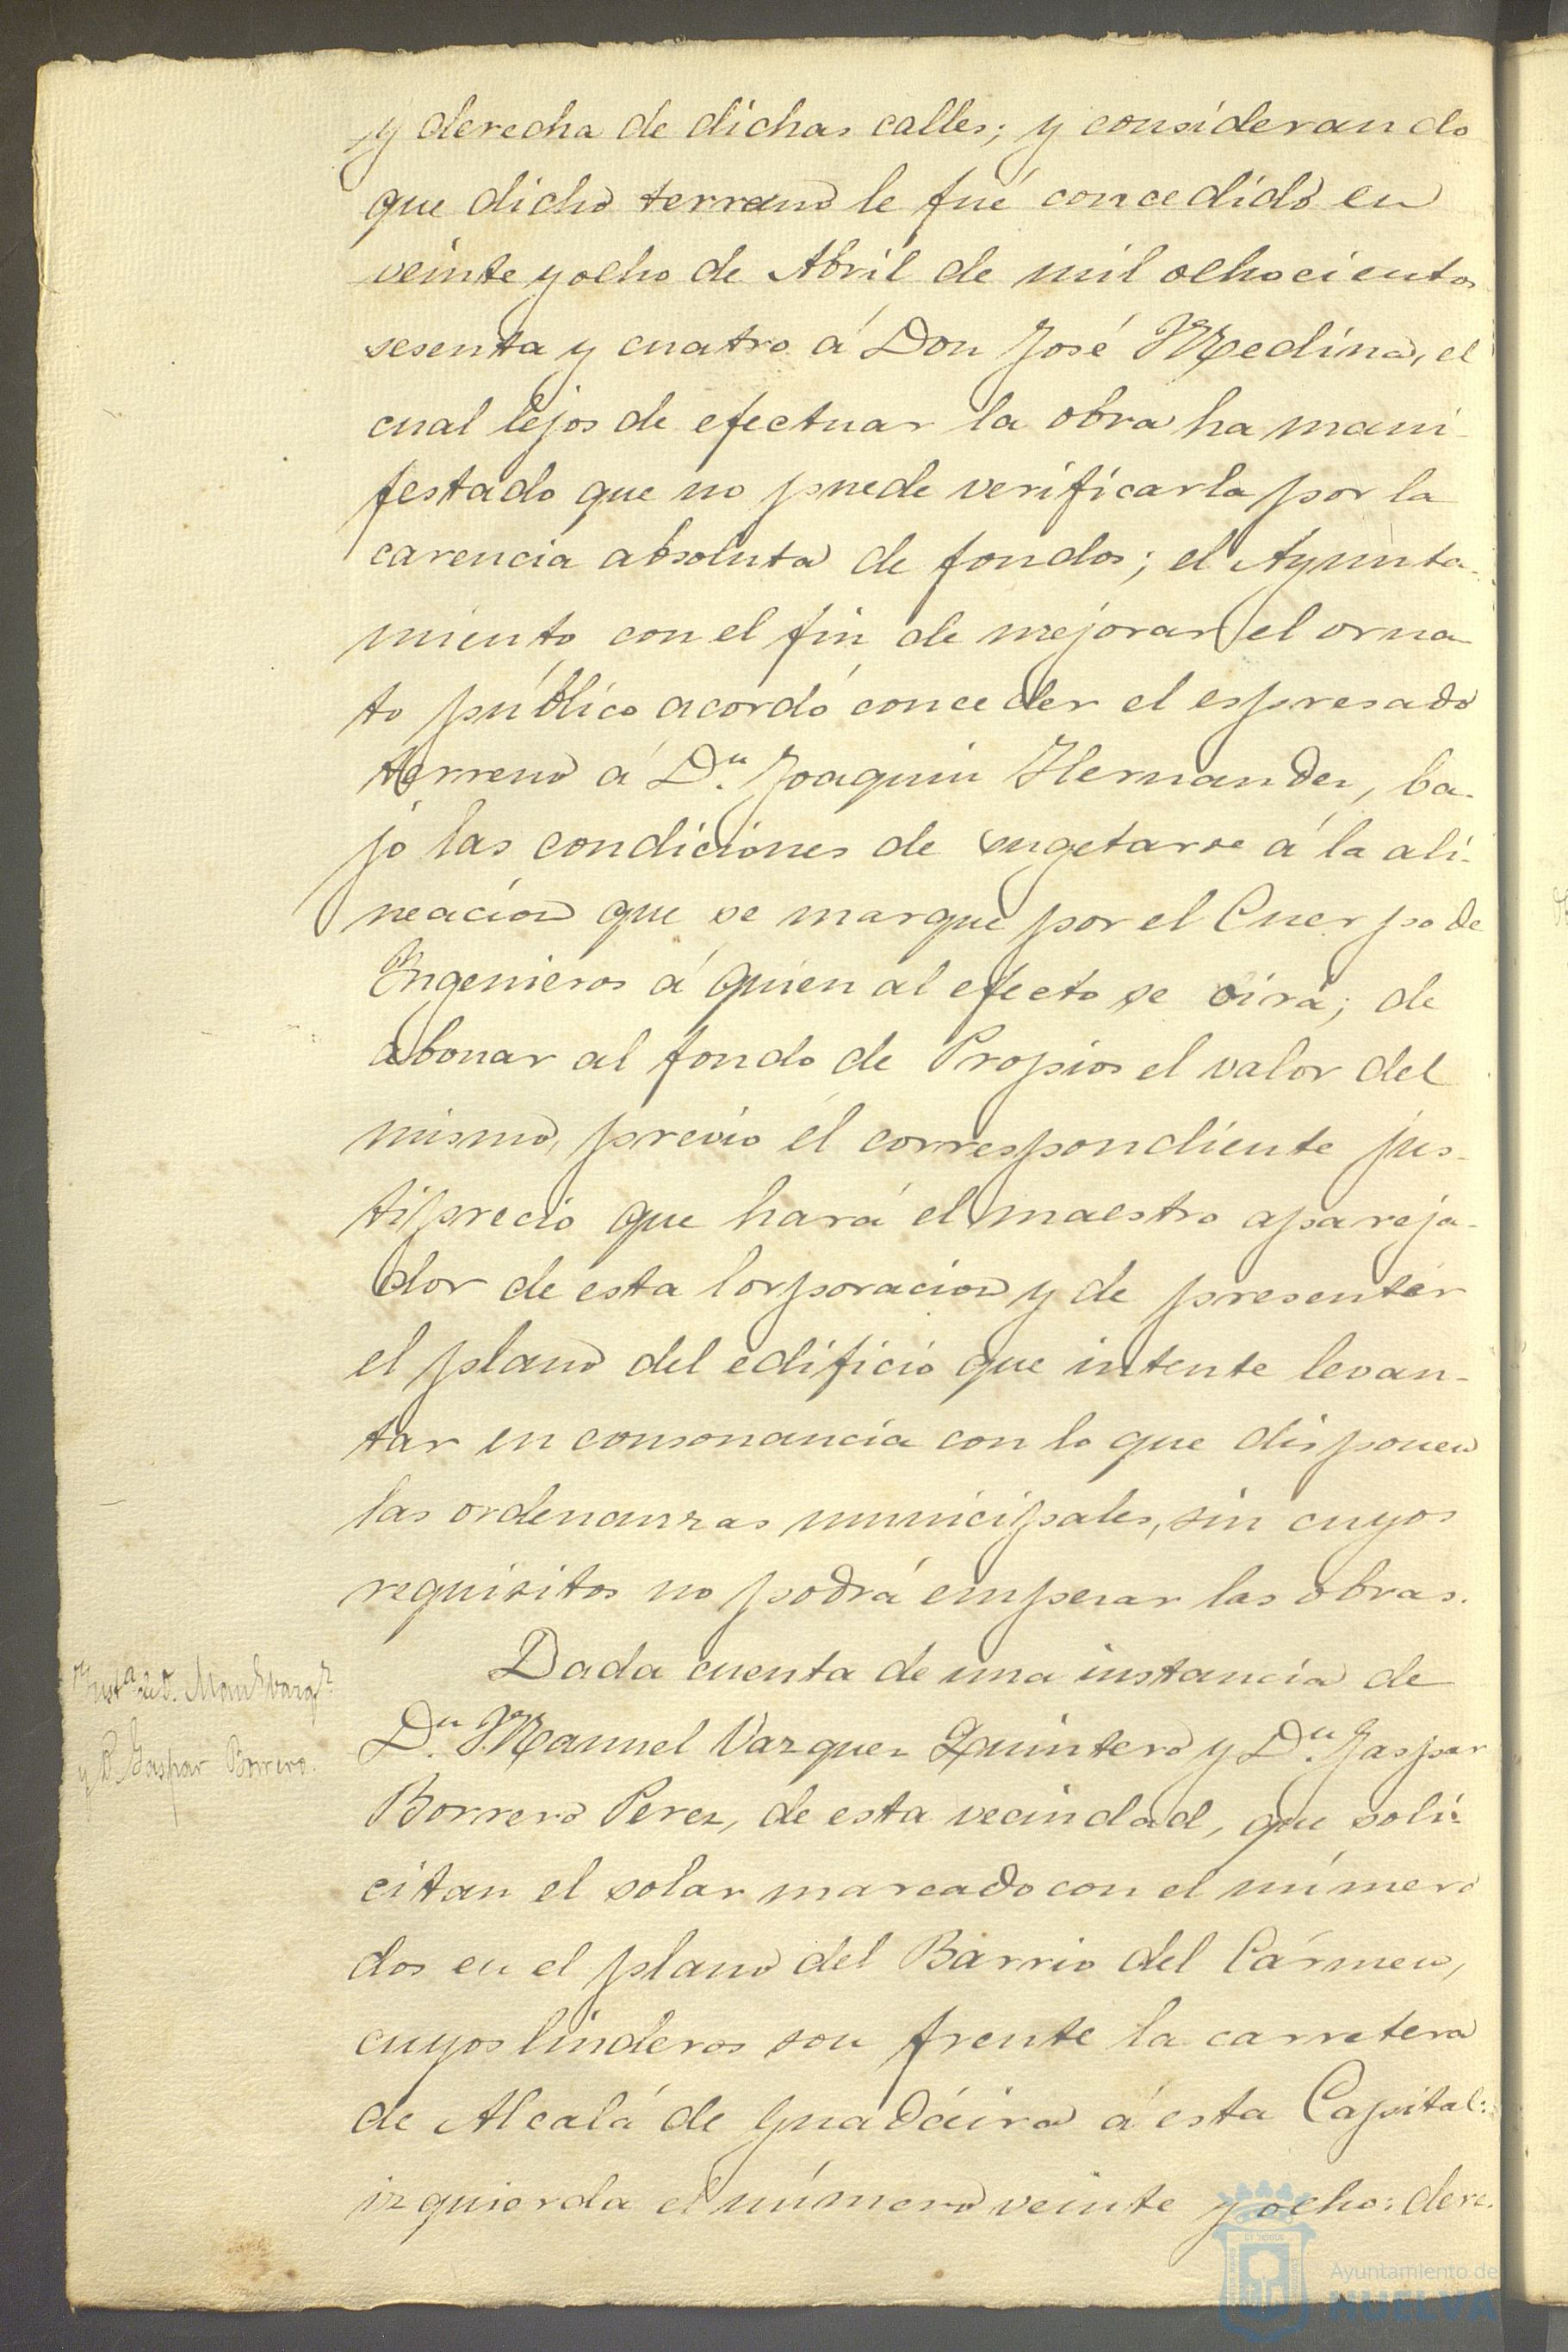 y derecha de dichas calles; y considerando
que dicho terreno le fué concedido en
veinte y ocho de Abril de mil ochocientos
sesenta y cuatro á Don José Medina, el
cual lejos de efectuar la obra ha mani-
festado que no puede verificarla por la
carencia absoluta de fondos; el Ayunta-
miento con el fin de mejorar el orna
to público acordó conceder el espresado
terreno á Dn. Joaquin Hernandez, ba-
jo las condiciones de sugetarse á la ali-
neacion que se marque por el Cuerpo de
Ingenieros á quien al efecto se oirá; de
abonar al fondo de Propios el valor del
mismo, previo el correspondiente jus-
tiprecio que hará el maestro apareja-
dor de esta Corporacion y de presentar
el plano del edificio que intente levan-
tar en consonancia con lo que disponen
las ordenanzas municipales, sin cuyos
requisitos no podrá empezar las obras.
Insta. de D. Manl. Vazqz.
y D. Gaspar Borrero.
Dada cuenta de una instancia de
Dn. Manuel Vazquez Quintero y Dn. Gaspar
Borrero Perez, de esta vecindad, que soli-
citan el solar marcado con el número
dos en el plano del Barrio del Cármen,
cuyos linderos son frente la carretera
de Alcalá de Guadáira á esta Capital:
izquierda el número veinte y ocho: dere.
Ayuntamiento de
HUELVA